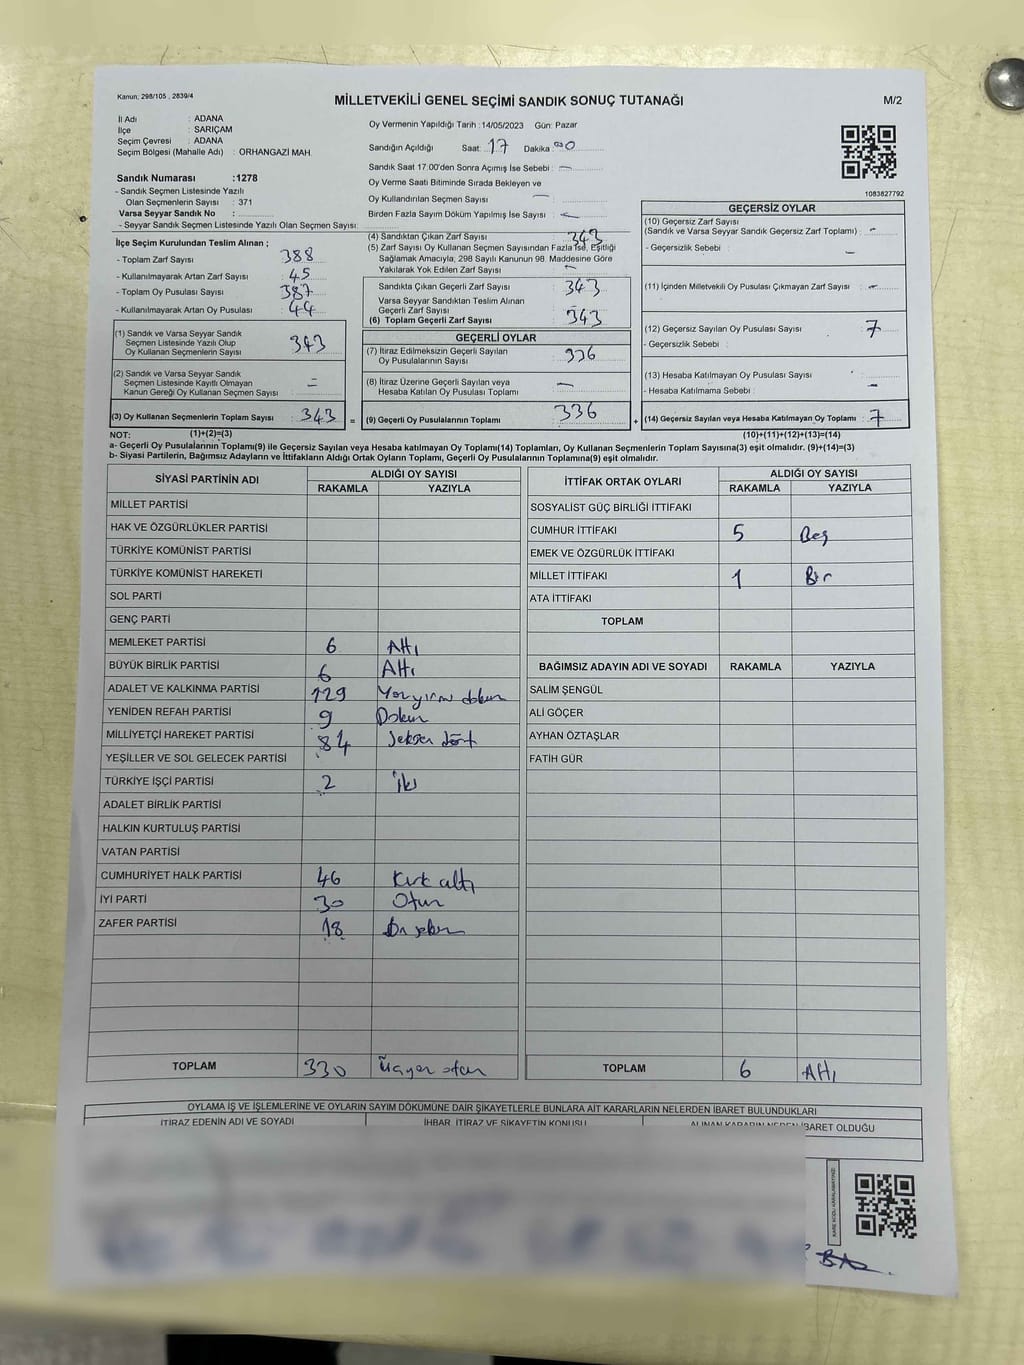 Kanun; 298/105 , 2839/4
MİLLETVEKİLİ GENEL SEÇİMİ SANDIK SONUÇ TUTANAĞI
M/2
İl Adı : ADANA
İlçe : SARIÇAM
Seçim Çevresi : ADANA
Seçim Bölgesi (Mahalle Adı) : ORHANGAZİ MAH.
Oy Vermenin Yapıldığı Tarih :14/05/2023 Gün: Pazar
Sandığın Açıldığı Saat: 17 Dakika 00
Sandık Saat 17:00'den Sonra Açımış İse Sebebi : —
Oy Verme Saati Bitiminde Sırada Bekleyen ve
Oy Kullandırılan Seçmen Sayısı —
Birden Fazla Sayım Döküm Yapılmış İse Sayısı : —
1083827792
Sandık Numarası :1278
- Sandık Seçmen Listesinde Yazılı
Olan Seçmenlerin Sayısı : 371
Varsa Seyyar Sandık No :
- Seyyar Sandık Seçmen Listesinde Yazılı Olan Seçmen Sayısı:
İlçe Seçim Kurulundan Teslim Alınan ;
- Toplam Zarf Sayısı : 388
- Kullanılmayarak Artan Zarf Sayısı : 45
- Toplam Oy Pusulası Sayısı : 387
- Kullanılmayarak Artan Oy Pusulası : 44
(1) Sandık ve Varsa Seyyar Sandık
Seçmen Listesinde Yazılı Olup
Oy Kullanan Seçmenlerin Sayısı 343
(2) Sandık ve Varsa Seyyar Sandık
Seçmen Listesinde Kayıtlı Olmayan
Kanun Gereği Oy Kullanan Seçmen Sayısı : —
(3) Oy Kullanan Seçmenlerin Toplam Sayısı : 343 =
(4) Sandıktan Çıkan Zarf Sayısı : 343
(5) Zarf Sayısı Oy Kullanan Seçmen Sayısından Fazla İse, Eşitliği
Sağlamak Amacıyla, 298 Sayılı Kanunun 98. Maddesine Göre
Yakılarak Yok Edilen Zarf Sayısı : —
Sandıkta Çıkan Geçerli Zarf Sayısı : 343
Varsa Seyyar Sandıktan Teslim Alınan
Geçerli Zarf Sayısı :
(6) Toplam Geçerli Zarf Sayısı : 343
GEÇERLİ OYLAR
(7) İtiraz Edilmeksizin Geçerli Sayılan
Oy Pusulalarının Sayısı : 336
(8) İtiraz Üzerine Geçerli Sayılan veya
Hesaba Katılan Oy Pusulaları Toplamı : —
(9) Geçerli Oy Pusulalarının Toplamı : 336 +
GEÇERSİZ OYLAR
(10) Geçersiz Zarf Sayısı
(Sandık ve Varsa Seyyar Sandık Geçersiz Zarf Toplamı) : -
- Geçersizlik Sebebi : —
(11) İçinden Milletvekili Oy Pusulası Çıkmayan Zarf Sayısı : —
(12) Geçersiz Sayılan Oy Pusulası Sayısı : 7
- Geçersizlik Sebebi :
(13) Hesaba Katılmayan Oy Pusulası Sayısı :
- Hesaba Katılmama Sebebi : —
(14) Geçersiz Sayılan veya Hesaba Katılmayan Oy Toplamı : 7
NOT: (1)+(2)=(3) (10)+(11)+(12)+(13)=(14)
a- Geçerli Oy Pusulalarının Toplamı(9) ile Geçersiz Sayılan veya Hesaba katılmayan Oy Toplamı(14) Toplamları, Oy Kullanan Seçmenlerin Toplam Sayısına(3) eşit olmalıdır. (9)+(14)=(3)
b- Siyasi Partilerin, Bağımsız Adayların ve İttifakların Aldığı Ortak Oyların Toplamı, Geçerli Oy Pusulalarının Toplamına(9) eşit olmalıdır.
SİYASİ PARTİNİN ADI ALDIĞI OY SAYISI
RAKAMLA YAZIYLA
MİLLET PARTİSİ
HAK VE ÖZGÜRLÜKLER PARTİSİ
TÜRKİYE KOMÜNİST PARTİSİ
TÜRKİYE KOMÜNİST HAREKETİ
SOL PARTİ
GENÇ PARTİ
MEMLEKET PARTİSİ 6 Altı
BÜYÜK BİRLİK PARTİSİ 6 Altı
ADALET VE KALKINMA PARTİSİ 129 Yüzyirmi dokuz
YENİDEN REFAH PARTİSİ 9 Dokuz
MİLLİYETÇİ HAREKET PARTİSİ 84 Seksen dört
YEŞİLLER VE SOL GELECEK PARTİSİ
TÜRKİYE İŞÇİ PARTİSİ 2 İki
ADALET BİRLİK PARTİSİ
HALKIN KURTULUŞ PARTİSİ
VATAN PARTİSİ
CUMHURİYET HALK PARTİSİ 46 Kırk altı
İYİ PARTİ 30 Otuz
ZAFER PARTİSİ 18 On sekiz
TOPLAM 330 Üçyüz otuz
İTTİFAK ORTAK OYLARI ALDIĞI OY SAYISI
RAKAMLA YAZIYLA
SOSYALİST GÜÇ BİRLİĞİ İTTİFAKI
CUMHUR İTTİFAKI 5 Beş
EMEK VE ÖZGÜRLÜK İTTİFAKI
MİLLET İTTİFAKI 1 Bir
ATA İTTİFAKI
TOPLAM
BAĞIMSIZ ADAYIN ADI VE SOYADI RAKAMLA YAZIYLA
SALİM ŞENGÜL
ALİ GÖÇER
AYHAN ÖZTAŞLAR
FATİH GÜR
TOPLAM 6 Altı
OYLAMA İŞ VE İŞLEMLERİNE VE OYLARIN SAYIM DÖKÜMÜNE DAİR ŞİKAYETLERLE BUNLARA AİT KARARLARIN NELERDEN İBARET BULUNDUKLARI
İTİRAZ EDENİN ADI VE SOYADI İHBAR, İTİRAZ VE ŞİKAYETİN KONUSU ALINAN KARARIN NEDEN İBARET OLDUĞU